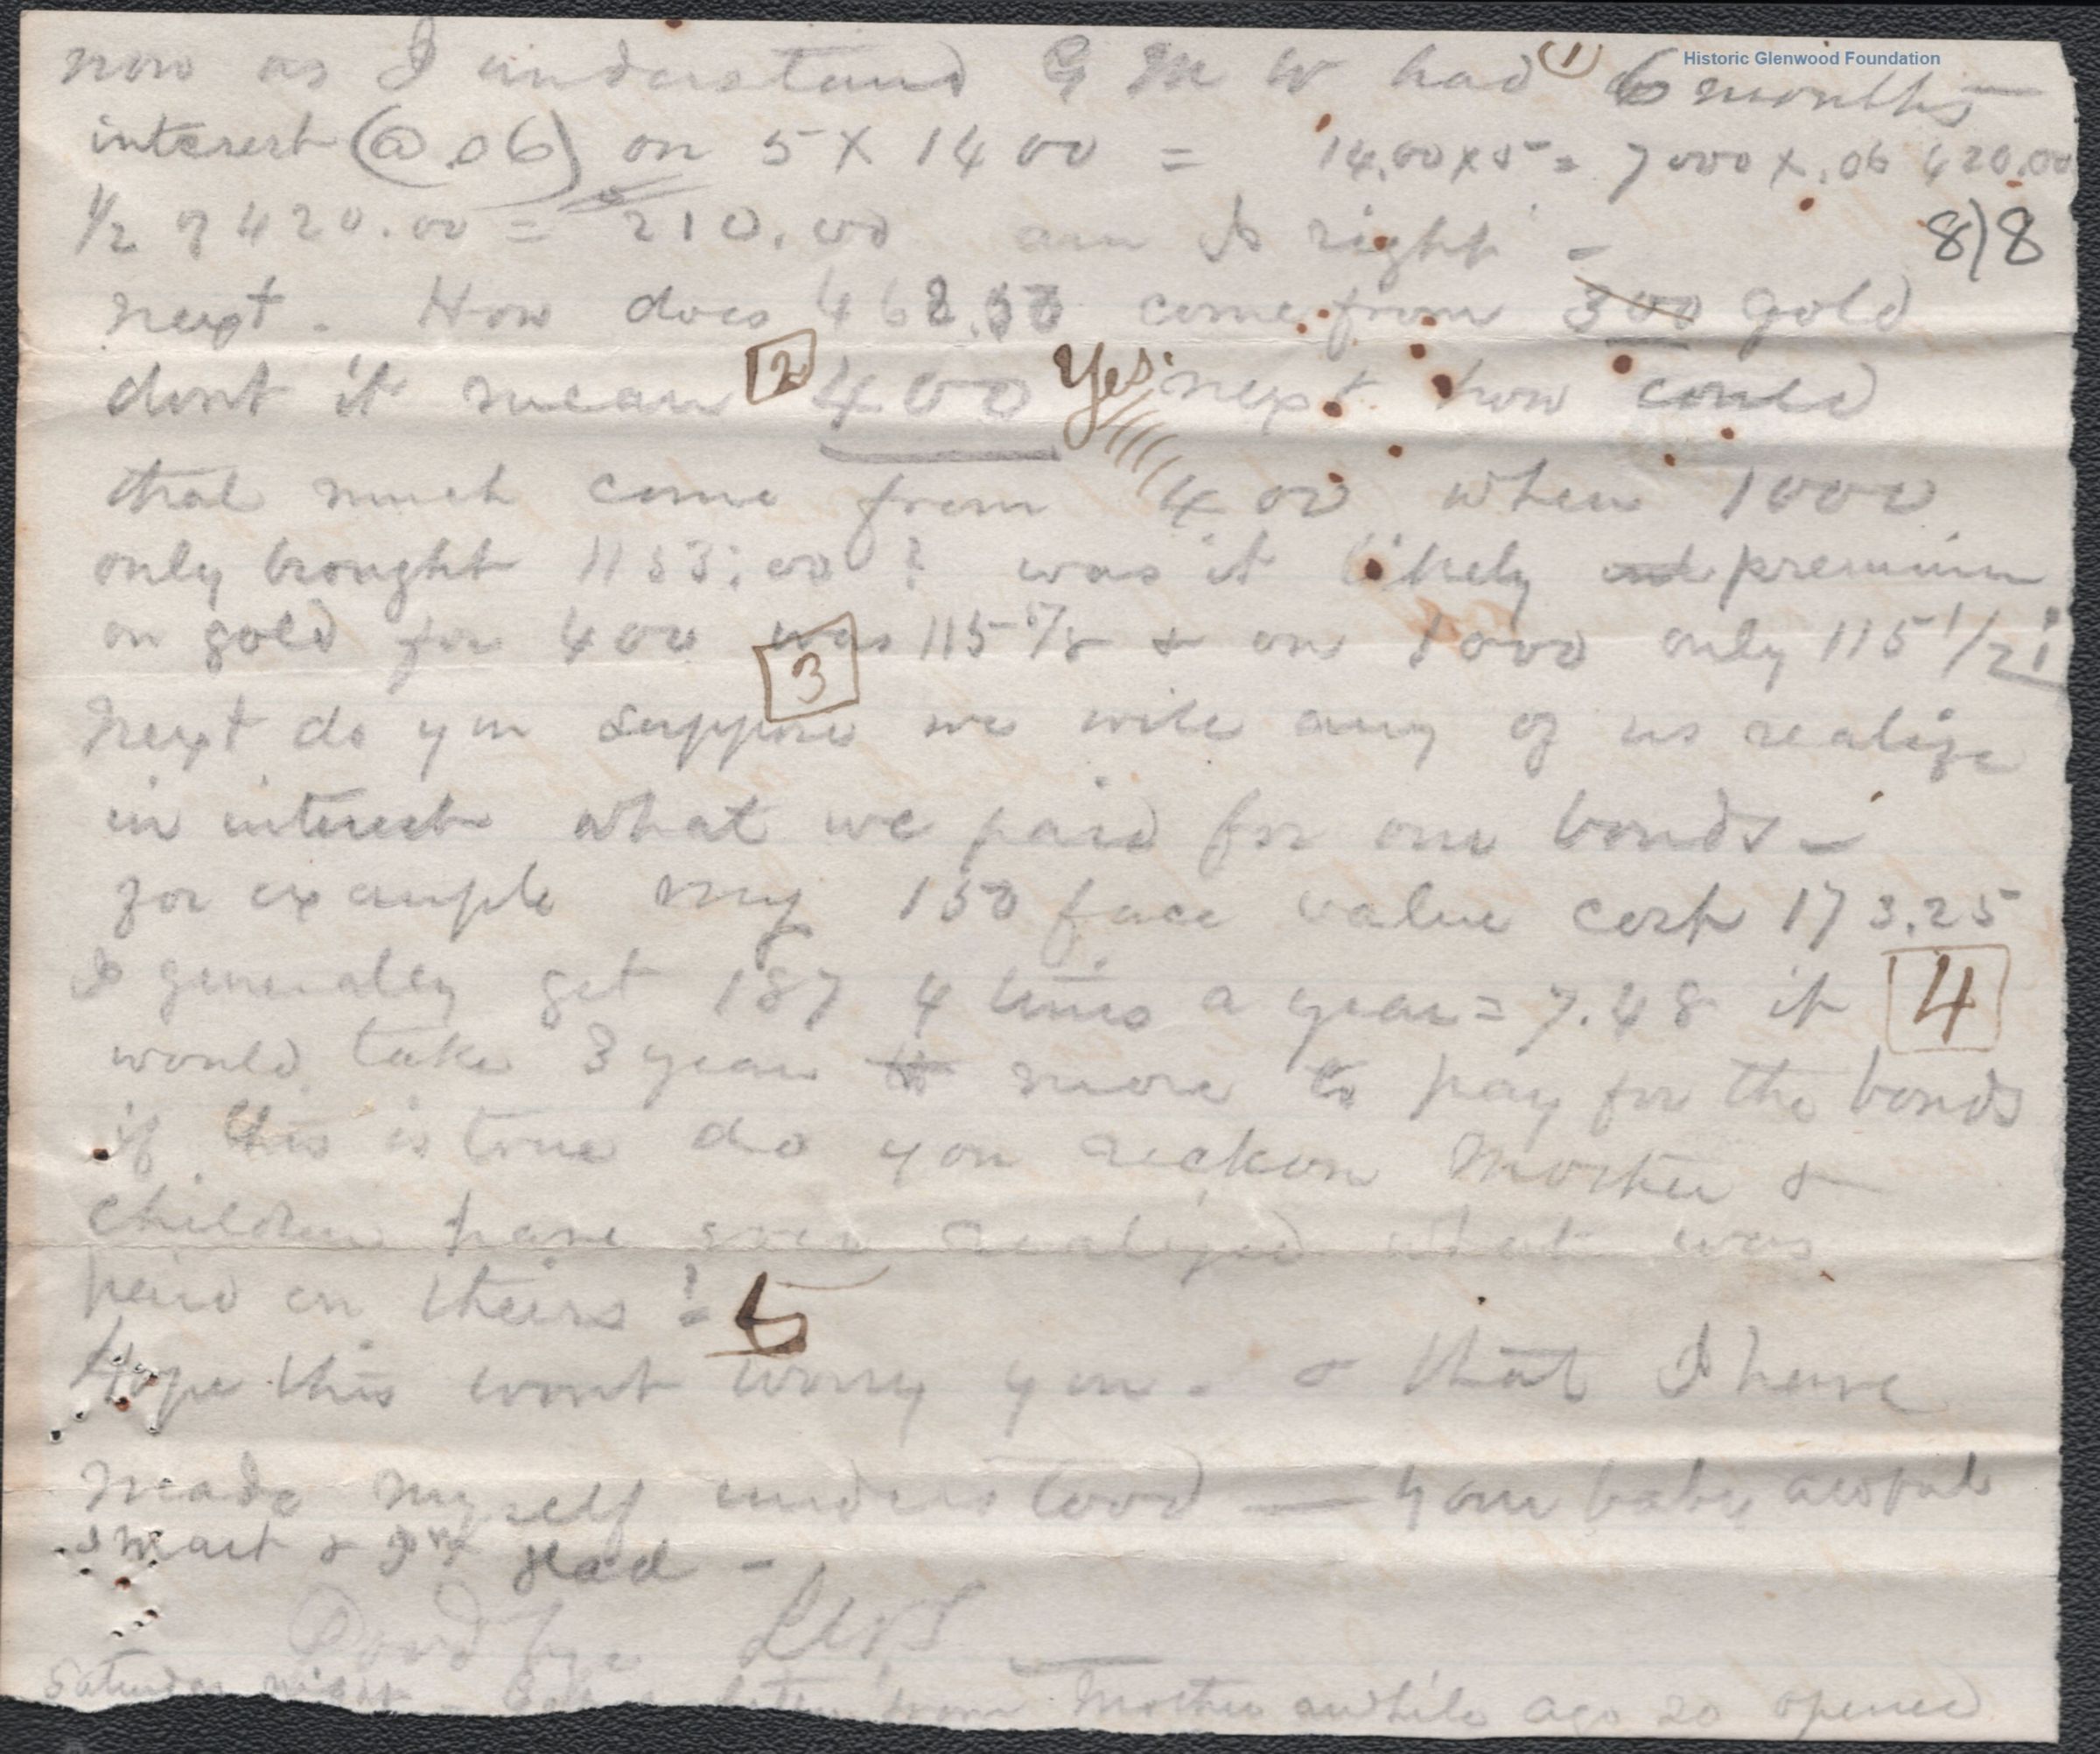 Historic Glenwood Foundation
now as I understand G M W had (1) 6 months
interest (@ .06) on 5 X 1400 = 14.00 x 5 = 7000 X .06 420.00
1/2 of 420.00 = 210.00 am I right -
8)8
next. How does 462.50 come from 300 gold
dont it mean [2] 400 Yes. next how could
that much come from 400 when 1000
only brought 1153.00 ? was it likely premium
on gold for 400 was 115 5/8 & on 1000 only 115 1/2 ?
[3]
Next do you suppose we will any of us realize
in interest what we paid for our bonds -
for example my 150 face value cost 173.25
I generaley get 187 4 times a year = 7.48 it [4]
would take 3 year more to pay for the bonds
if this is true do you reckon Mother &
children have ever realized what was
paid on theirs ? 5
Hope this wont worry you. & that I have
made myself understood — Your baby awful
smart & glad -
Good bye
Saturday night - letter from Mother awhile ago so opened